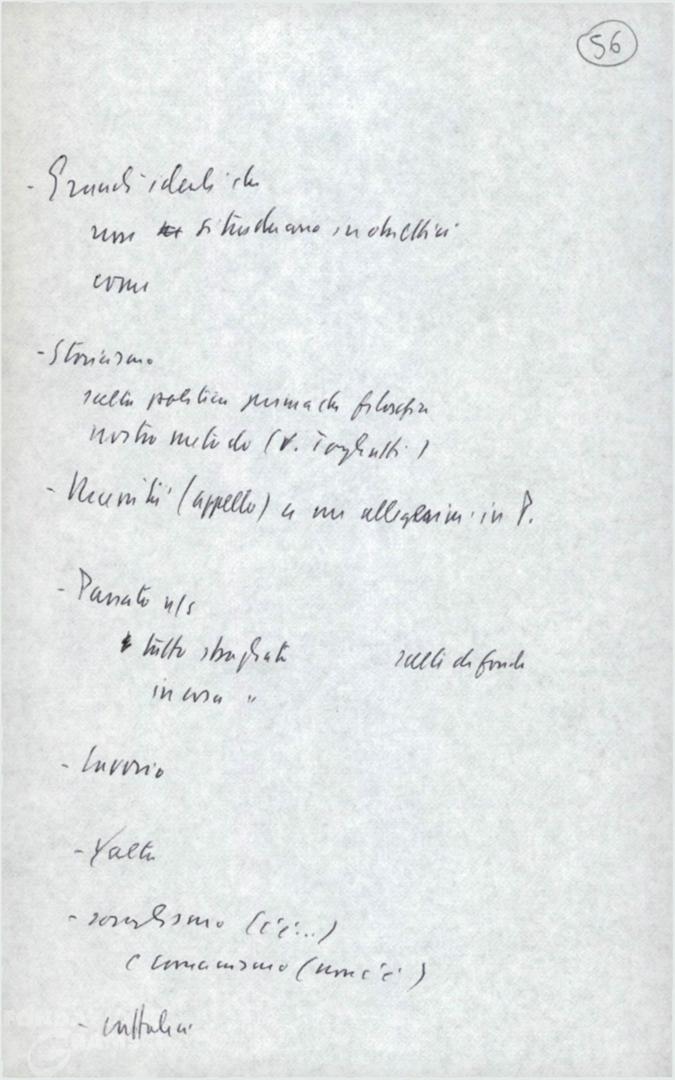 56
- Grandi ideali che
non si traducano in obiettivi
come
- Storicismo
scelta politica prima che filosofia
nostro metodo (v. Togliatti)
- Necessità (appello) a in P.
- Passato n/s
tutto sbagliato scelte di fondo
in cosa "
-
- Yalta
- socialismo (c'è...)
e comunismo (non c'è)
- cattolici